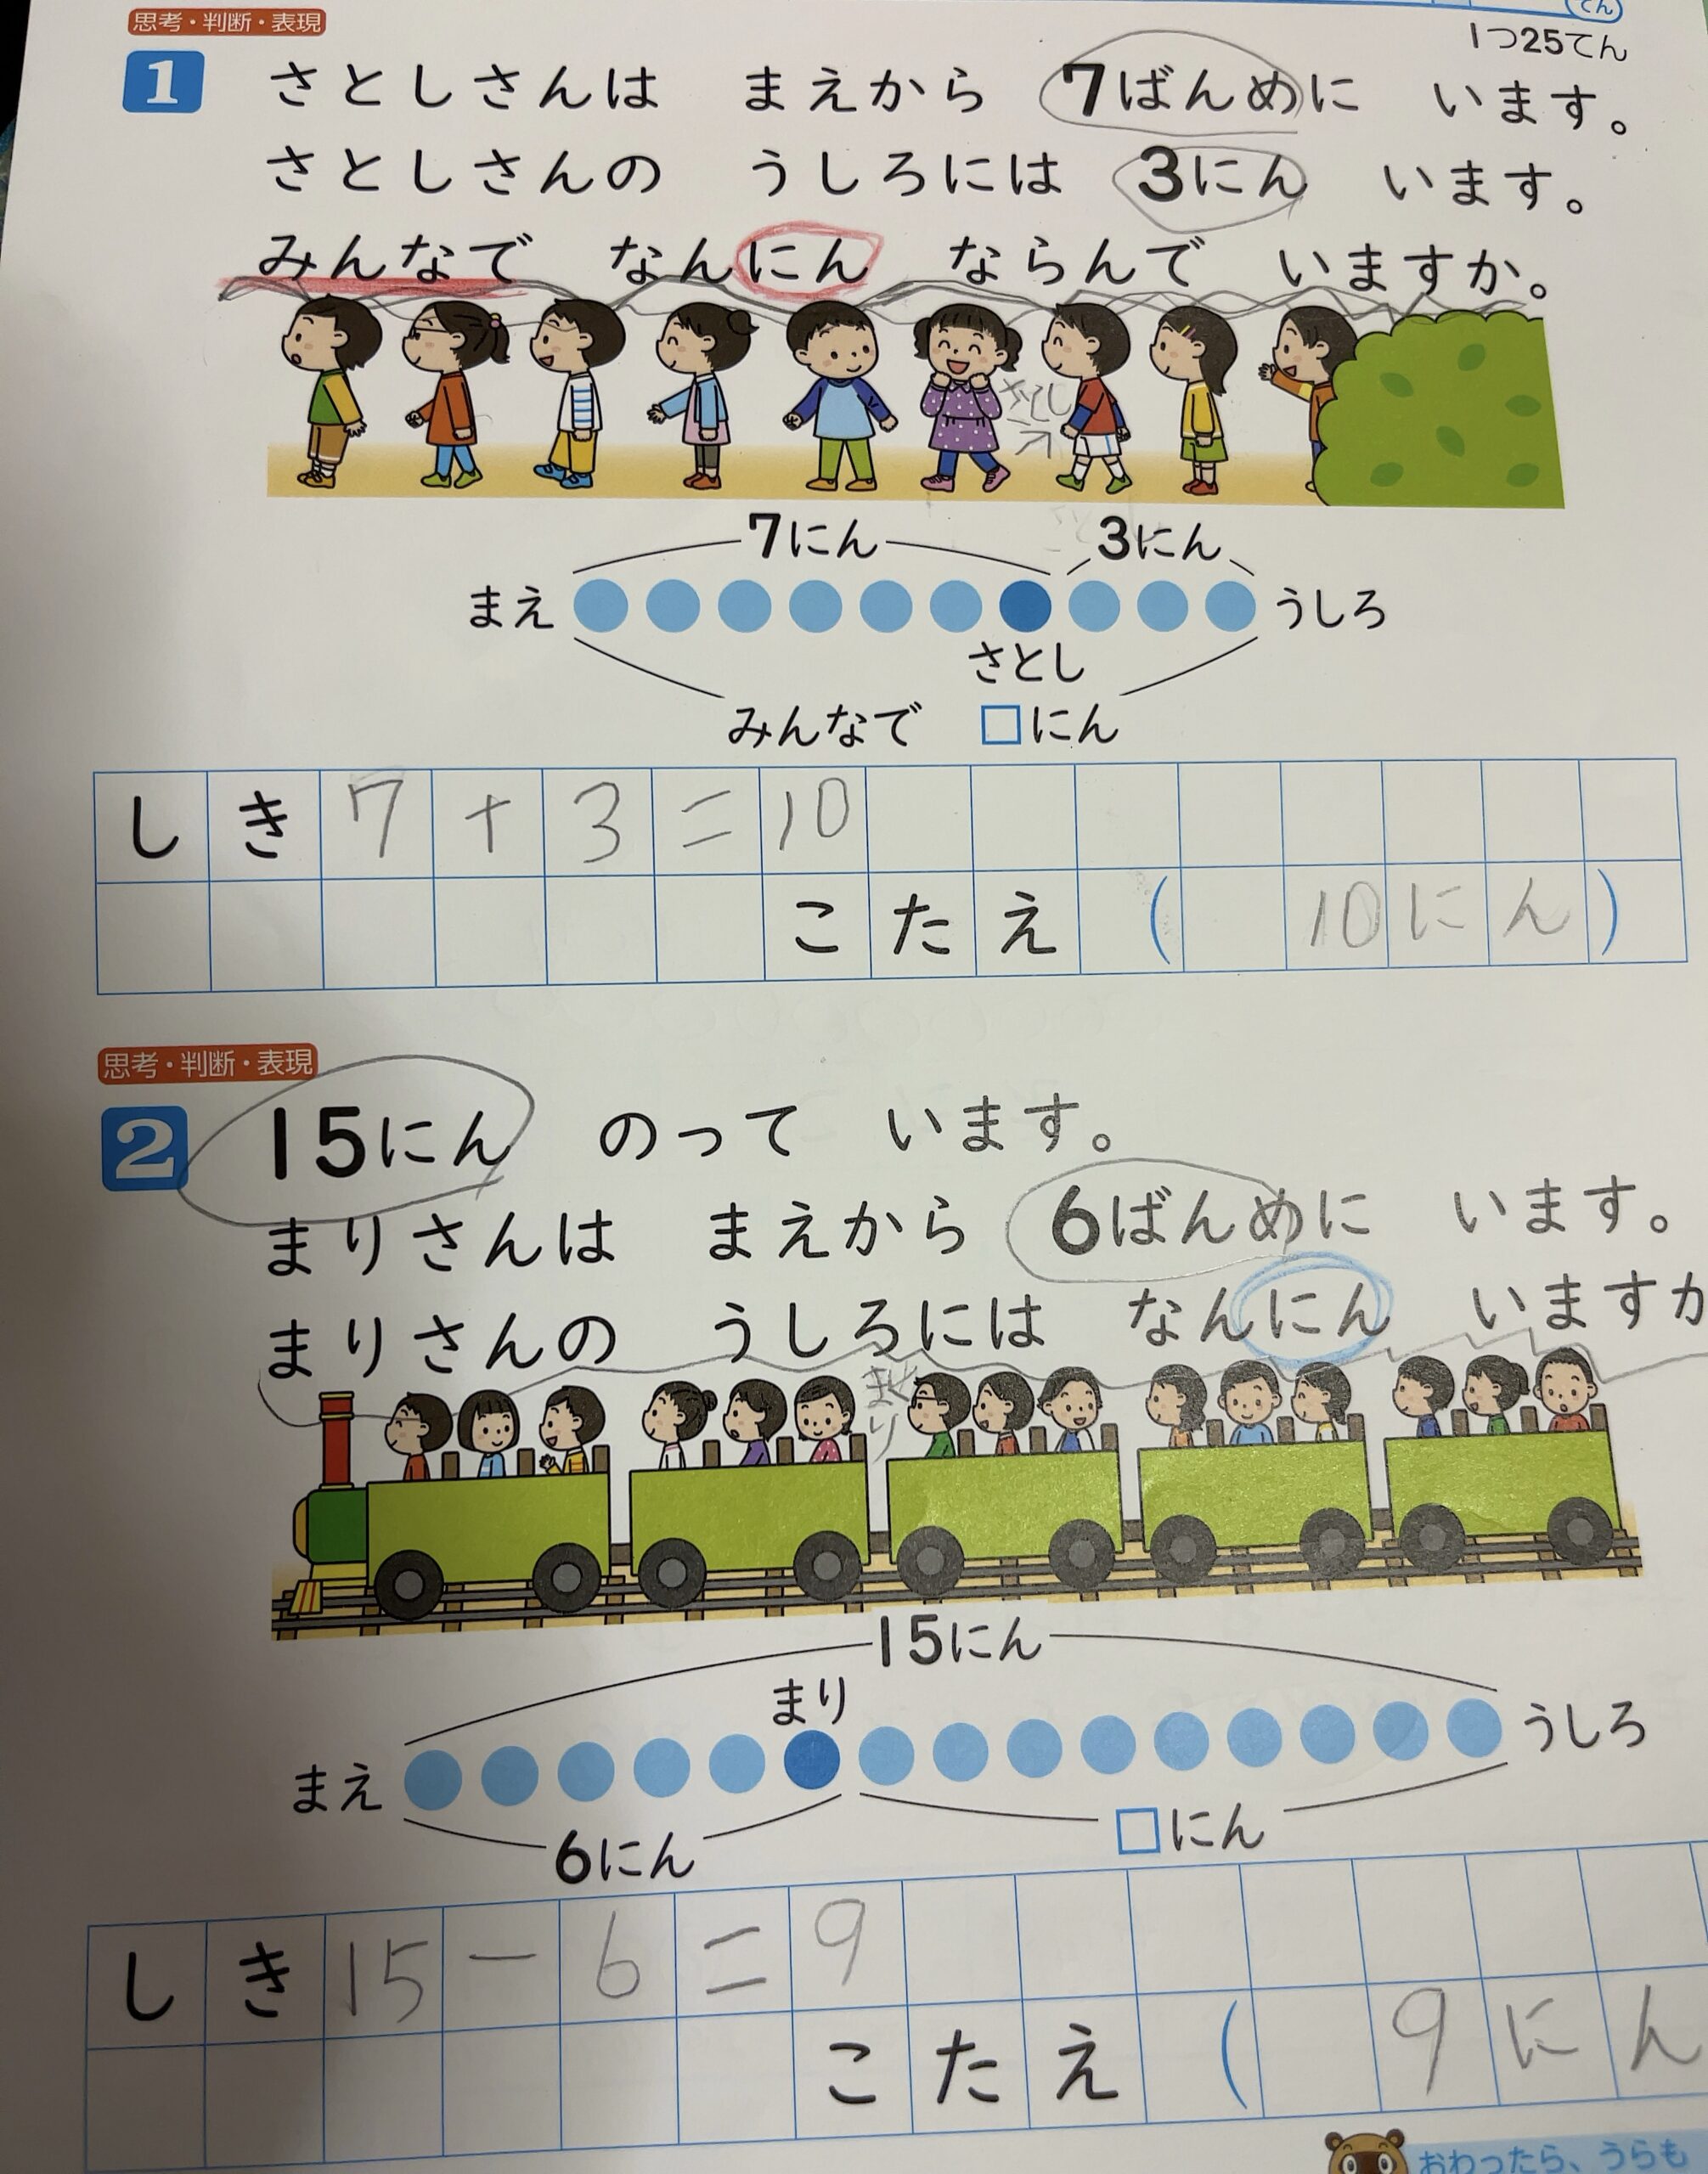 てん
1つ25てん
思考・判断・表現
1 さとしさんは まえから 7ばんめに います。
さとしさんの うしろには 3にん います。
みんなで なんにん ならんで いますか。
さとし
7にん 3にん
まえ うしろ
さとし
みんなで □にん
しき 7+3=10
こたえ ( 10にん )
思考・判断・表現
2 15にん のって います。
まりさんは まえから 6ばんめに います。
まりさんの うしろには なんにん いますか
まり
15にん
まり
まえ うしろ
6にん □にん
しき 15-6=9
こたえ ( 9にん
おわったら、うらも